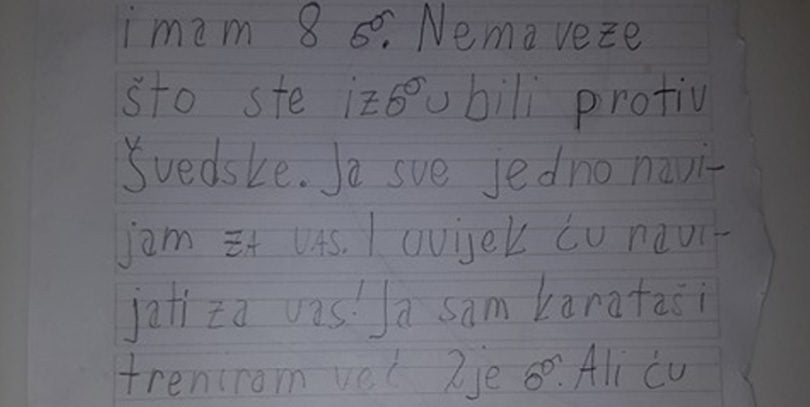 imam 8 g. Nema veze
što ste izgubili protiv
Švedske. Ja sve jedno navi-
jam ZA VAS. I uvijek ću navi-
jati za vas! Ja sam karataš i
treniram već 2je g. Ali ću